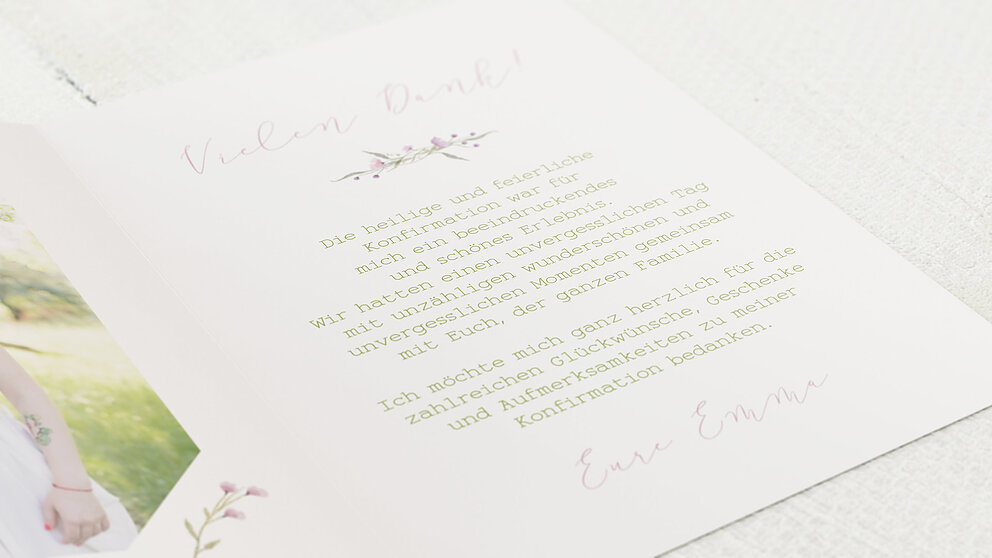 Vielen Dank!
Die heilige und feierliche
Konfirmation war für
mich ein beeindruckendes
und schönes Erlebnis.
Wir hatten einen unvergesslichen Tag
mit unzähligen wunderschönen und
unvergesslichen Momenten gemeinsam
mit Euch, der ganzen Familie.
Ich möchte mich ganz herzlich für die
zahlreichen Glückwünsche, Geschenke
und Aufmerksamkeiten zu meiner
Konfirmation bedanken.
Eure Emma